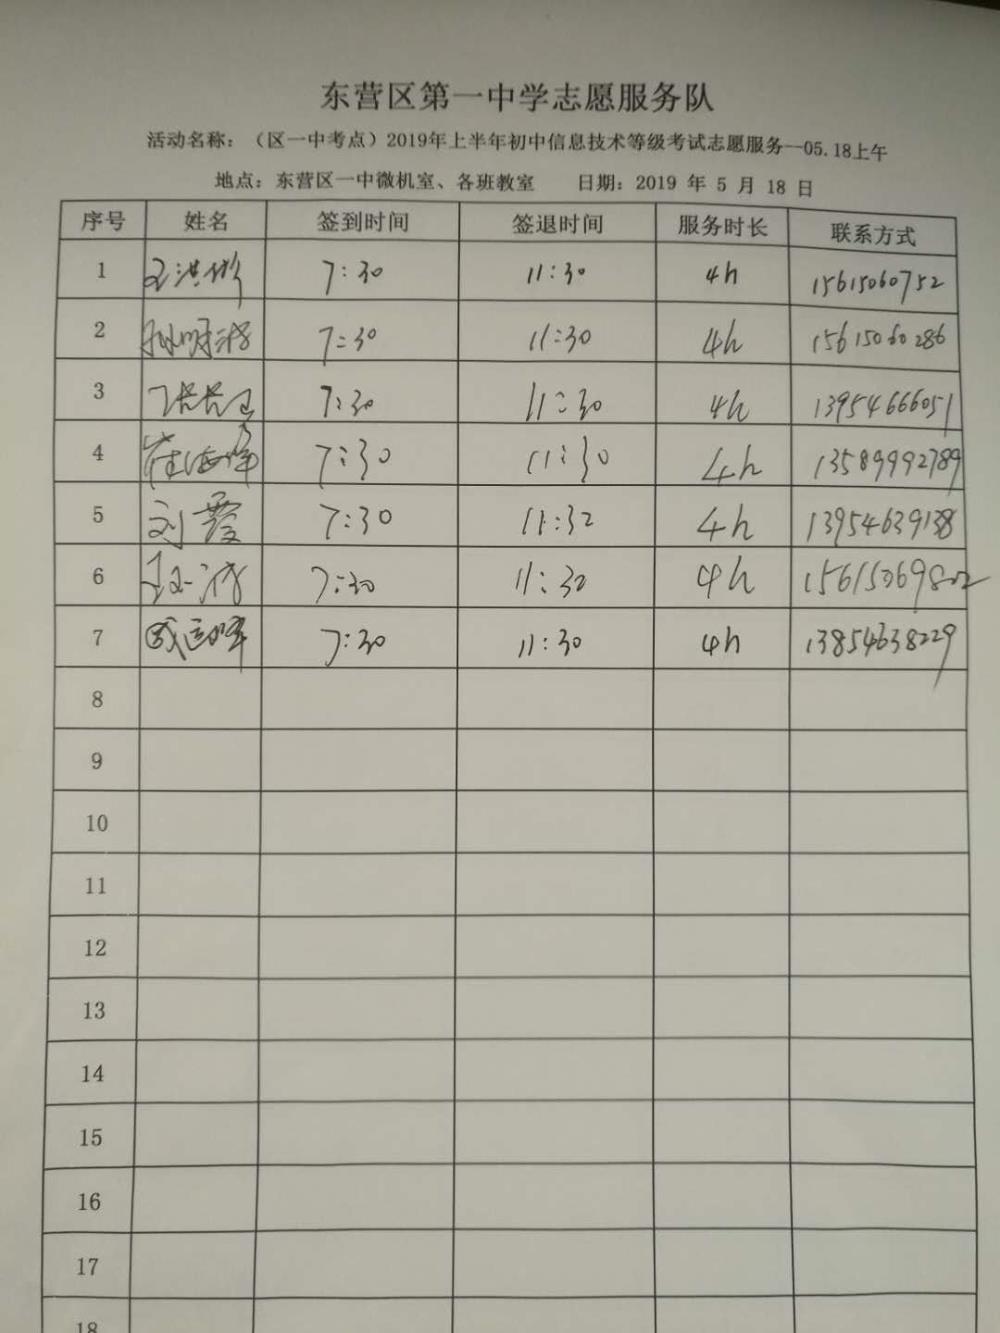 东营区第一中学志愿服务队
活动名称：（区一中考点）2019年上半年初中信息技术等级考试志愿服务--05.18上午
地点：东营区一中微机室、各班教室 日期：2019 年 5 月 18 日
序号 姓名 签到时间 签退时间 服务时长 联系方式
1 7:30 11:30 4h 15615060752
2 7:30 11:30 4h 15615060286
3 7:30 11:30 4h 13954666051
4 崔海峰 7:30 11:30 4h 13589992789
5 刘霞 7:30 11:32 4h 13954639138
6 7:30 11:30 4h
7 7:30 11:30 4h 13854638229
8
9
10
11
12
13
14
15
16
17
18